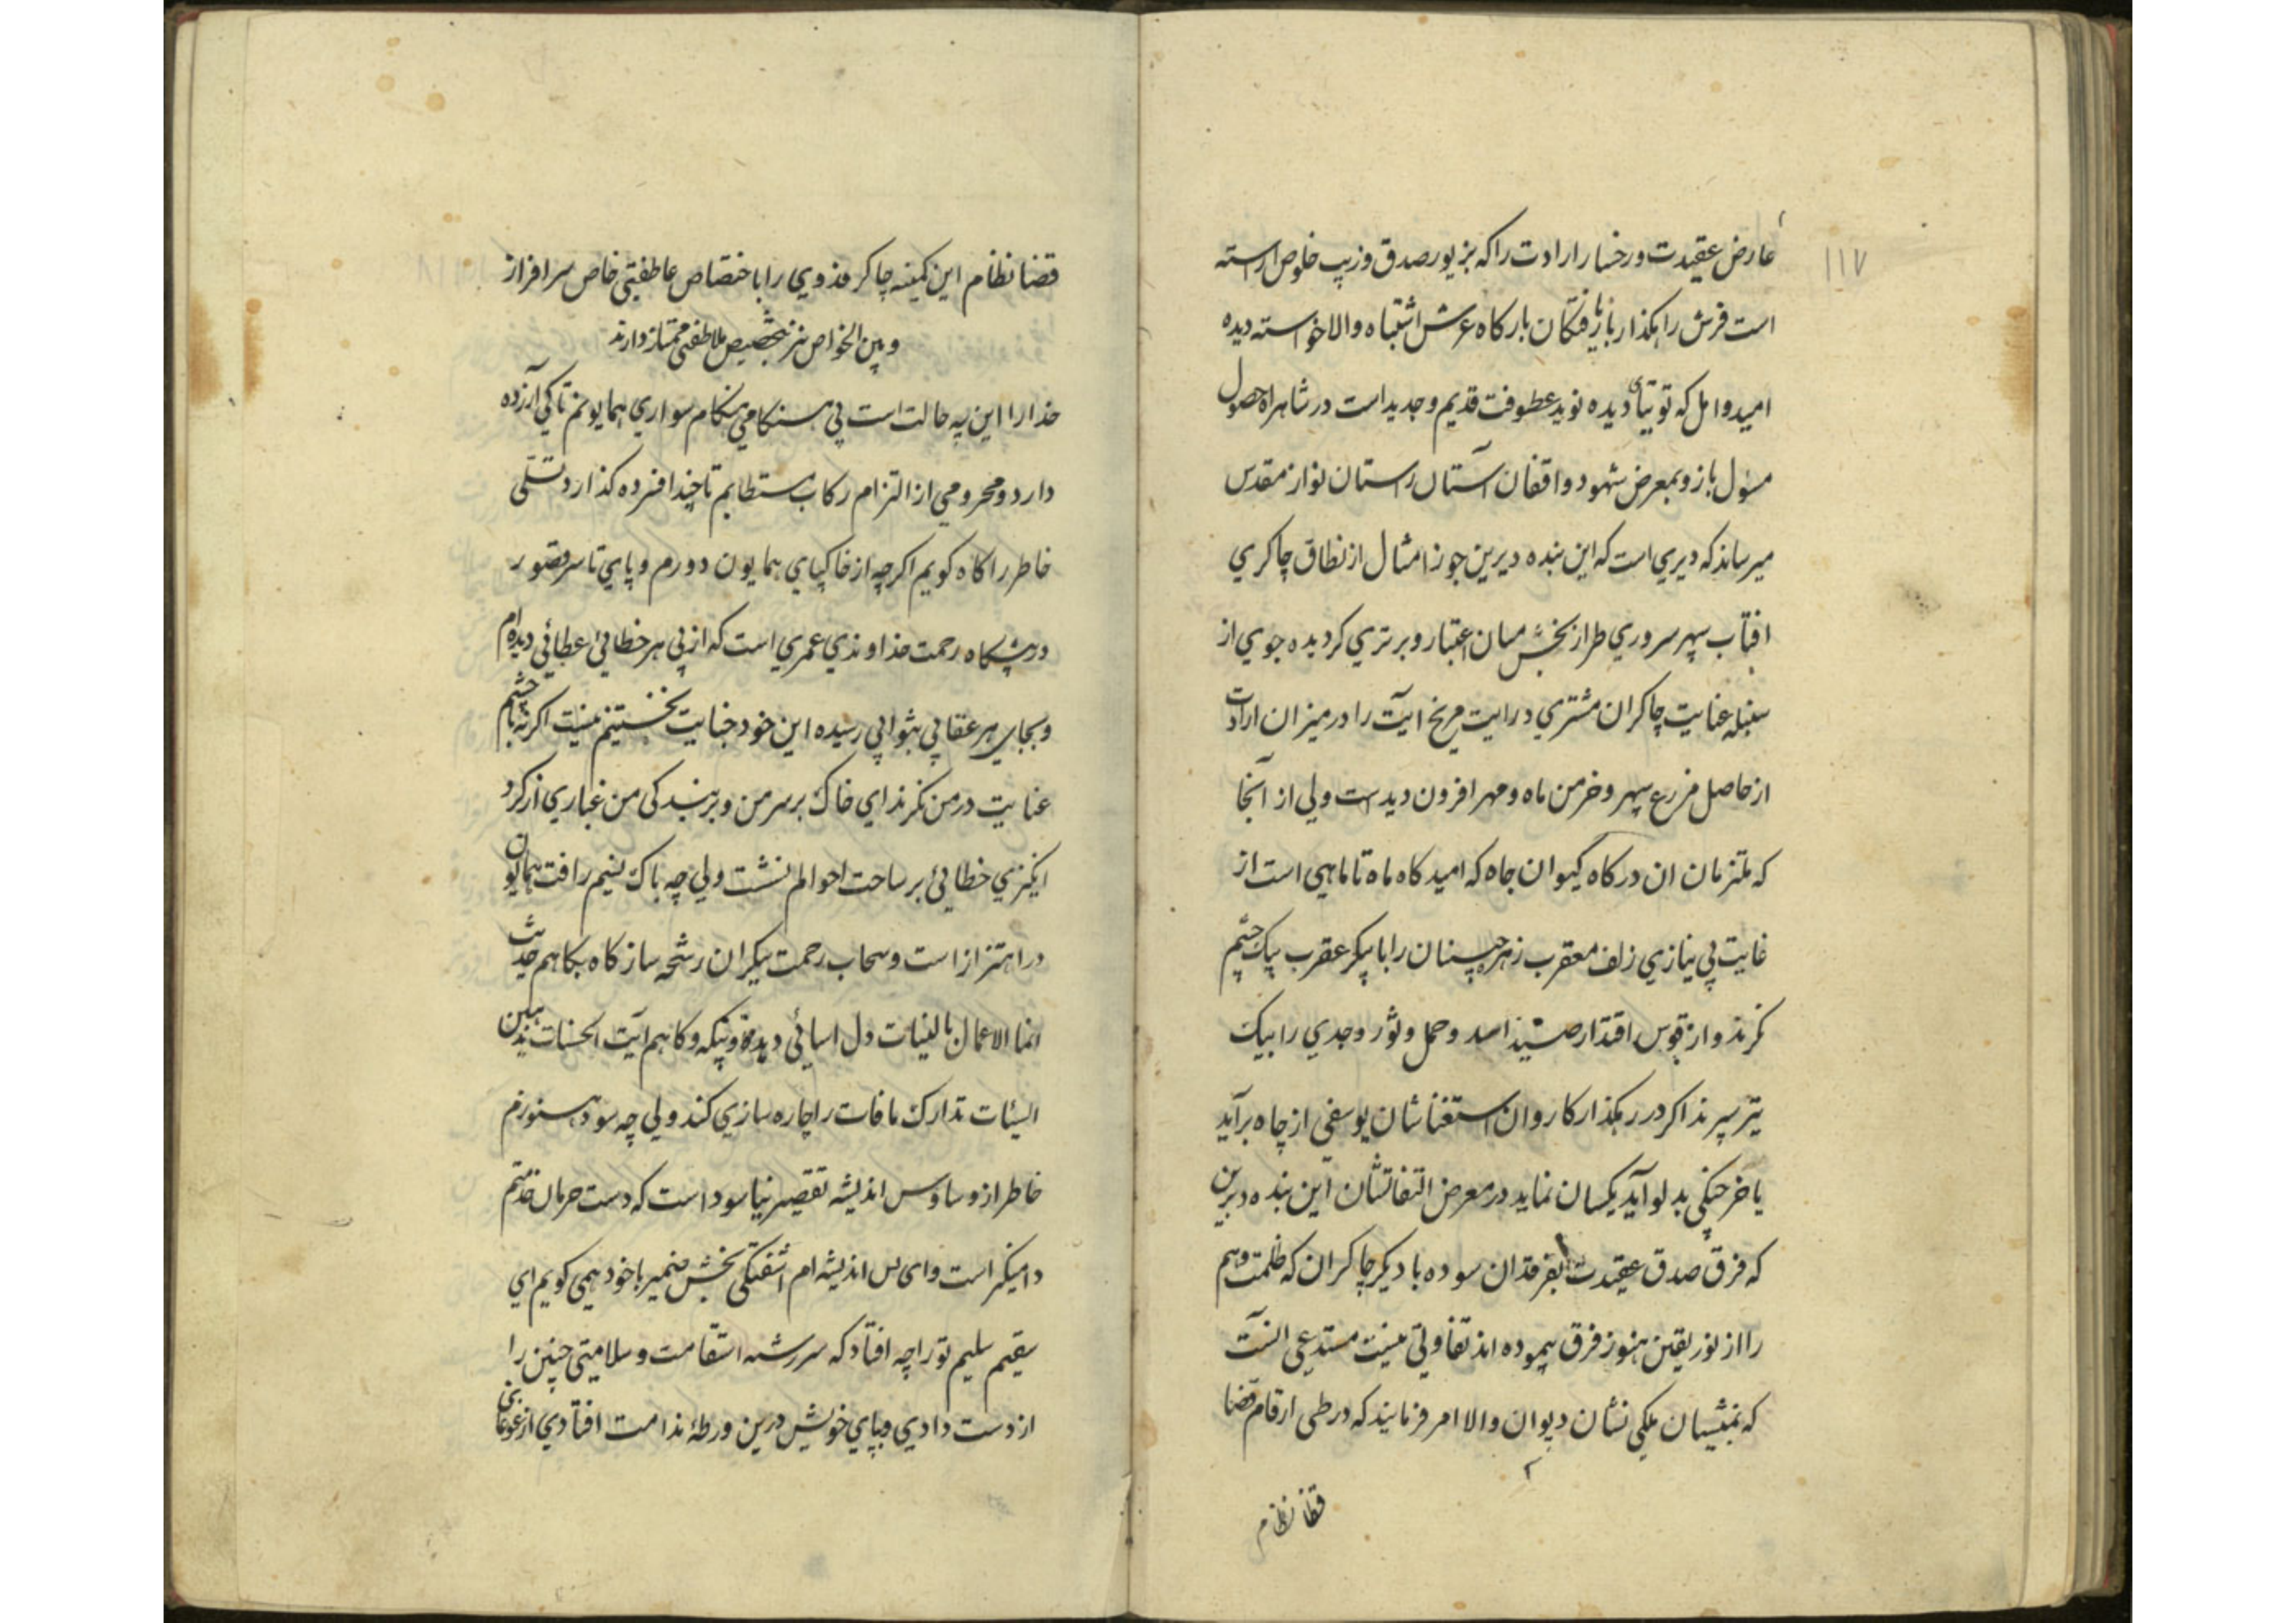 ۱۱۷
عارض عقیدت و رخسار ارادت را که بزیور صدق و زیب خلوص اراسته
است فرش راهکذار باریافتکان بارکاه عرش اشتباه والا خواسته دیده
امید و امل که توتیای دیده نوید عطوفت قدیم و جدید است در شاهراه حصول
مسؤل باز و بمعرض شهود واقفان آستان راستان نواز مقدس
میرساند که دیری است که این بنده دیرین جوزا مثال از نطاق چاکری
افتاب سپهر سروری طراز بخش میان اعتبار و برتری کردیده جوی از
سنبله عنایت چاکران مشتری درایت مریخ ایت را در میزان ارادت
از حاصل مزرع سپهر و خرمن ماه و مهر افزون دیدست ولی از آنجا
که ملتزمان ان درکاه کیوان جاه که امیدکاه ماه تا ماهی است از
غایت بی نیازی زلف معقرب زهره جبینان را با پیکر عقرب بیک چشم
نکرند و از قوس اقتدار صید اسد و حمل و ثور و جدی را بیک
تیر سپرند اکر در رهکذار کاروان استغناشان یوسفی از چاه برآید
یا خرچنکی بدلو آید یکسان نماید در معرض التفاتشان این بنده دیرین
که فرق صدق عقیدت بفرقدان سوده با دیکر چاکران که ظلمت وهم
را از نور یقین هنوز فرق ننموده اند تفاوتی نیست مستدعی انست
که بمنشیان ملکی نشان دیوان والا امر فرمایند که در طی ارقام قضا
قضا نظام
قضا نظام این کمینه چاکر فدوی را باختصاص عاطفتی خاص سرافراز
و بین الخواص نیز بتخصیص ملاطفتی ممتاز دارند
خدا را این چه حالت است بی هنکامی هنکام سواری همایونم تا کی آزرده
دارد و محرومی از التزام رکاب مستطابم تا چند افسرده کذارد تسلی
خاطر را کاه کویم اکرچه از خاکپای همایون دورم و پای تا سر قصور
در پیشکاه رحمت خداوندی عمری است که از پی هر خطائی عطائی دیده ام
و بجای هر عقابی بثوابی رسیده این خود جنایت نخستینم نیست اکر نه با چشم
عنایت در من نکرند ای خاک بر سر من و بر بندکی من غباری از کرد
انکیزی خطائی بر ساحت احوالم نشست ولی چه باک نسیم رافت همایون
در اهتزاز است و سحاب رحمت بیکران رشحه ساز کاه بکاهم حدیث
انما الاعمال بالنیات دل اسائی دیده و کاهم آیت الحسنات یذهبن
السیئات تدارک مافات را چاره سازی کند ولی چه سود هنوزم
خاطر از وساوس اندیشه تقصیر نیاسوده است که دست حرمان خدمتم
دامنکیر است و ای بس اندیشه ام اشفتکی بخش ضمیر با خود همی کویم ای
سقیم سلیم تو را چه افتاد که سررشته استقامت و سلامتی چنین را
از دست دادی و بپای خویش درین ورطهٔ ندامت افتادی از غوغای